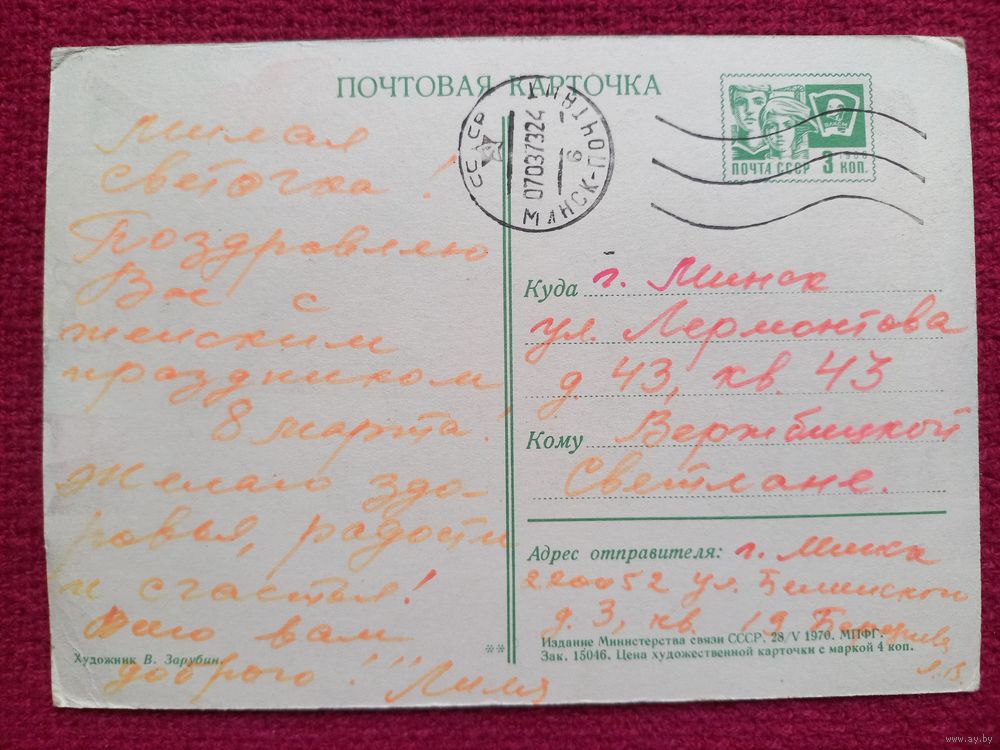 ПОЧТОВАЯ КАРТОЧКА
СССР
МИНСК-ПОЧТАМТ
07037324
6
ВЛКСМ
1968
ПОЧТА СССР 3 КОП.
Милая
Светочка!
Поздравляю
Вас с
женским
праздником,
8 марта!
Желаю здо-
ровья, радости
и счастья!
Всего вам
доброго!!! Лиля
Художник В. Зарубин.
**
Куда г. Минск
ул. Лермонтова
д. 43, кв. 43
Кому Вержбицкой
Светлане.
Адрес отправителя: г. Минск
220052 ул.
д. 3, кв. 19
Л.В.
Издание Министерства связи СССР. 28/V 1970. МПФГ.
Зак. 15046. Цена художественной карточки с маркой 4 коп.
www.ay.by